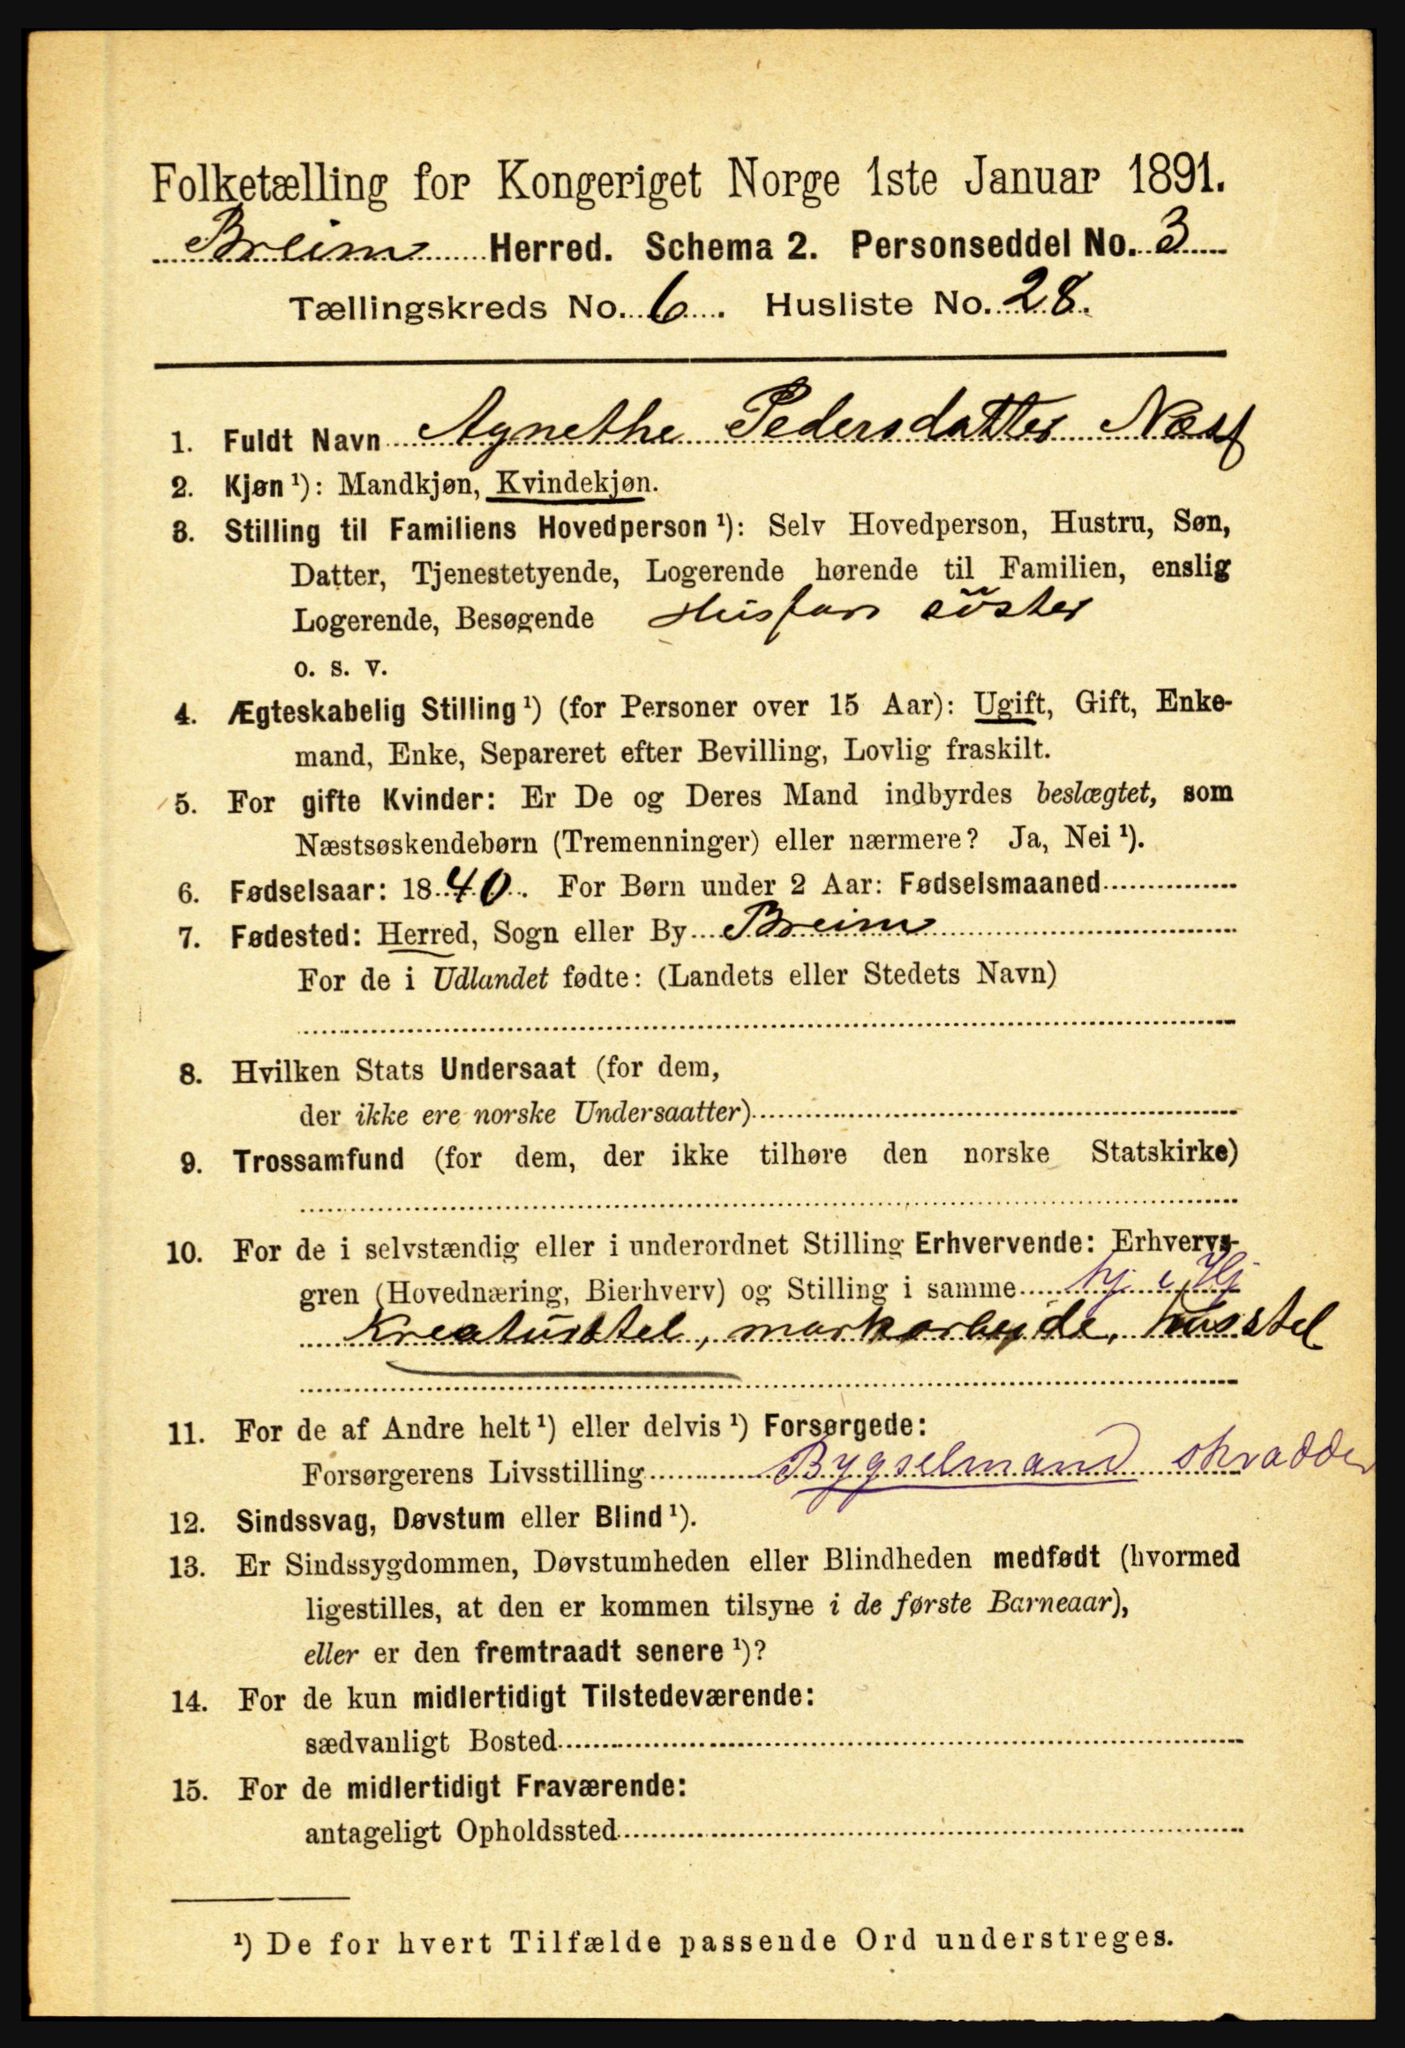 Folketælling for Kongeriget Norge 1ste Januar 1891.
Breim Herred. Schema 2. Personseddel No. 3
Tællingskreds No. 6. Husliste No. 28.
1. Fuldt Navn Agnethe Pedersdatter
2. Kjøn ¹): Mandkjøn, Kvindekjøn.
3. Stilling til Familiens Hovedperson ¹): Selv Hovedperson, Hustru, Søn,
Datter, Tjenestetyende, Logerende hørende til Familien, enslig
Logerende, Besøgende Husfars söster
o. s. v.
4. Ægteskabelig Stilling ¹) (for Personer over 15 Aar): Ugift, Gift, Enke-
mand, Enke, Separeret efter Bevilling, Lovlig fraskilt.
5. For gifte Kvinder: Er De og Deres Mand indbyrdes beslægtet, som
Næstsøskendebørn (Tremenninger) eller nærmere? Ja, Nei ¹).
6. Fødselsaar: 1840. For Børn under 2 Aar: Fødselsmaaned
7. Fødested: Herred, Sogn eller By Breim
For de i Udlandet fødte: (Landets eller Stedets Navn)
8. Hvilken Stats Undersaat (for dem,
der ikke ere norske Undersaatter)
9. Trossamfund (for dem, der ikke tilhøre den norske Statskirke)
10. For de i selvstændig eller i underordnet Stilling Erhvervende: Erhvervs-
gren (Hovednæring, Bierhverv) og Stilling i samme
Kreaturstel, markarbejde, husstel
11. For de af Andre helt ¹) eller delvis ¹) Forsørgede:
Forsørgerens Livsstilling Bygselmand skrædder
12. Sindssvag, Døvstum eller Blind ¹).
13. Er Sindssygdommen, Døvstumheden eller Blindheden medfødt (hvormed
ligestilles, at den er kommen tilsyne i de første Barneaar),
eller er den fremtraadt senere ¹)?
14. For de kun midlertidigt Tilstedeværende:
sædvanligt Bosted
15. For de midlertidigt Fraværende:
antageligt Opholdssted
¹) De for hvert Tilfælde passende Ord understreges.